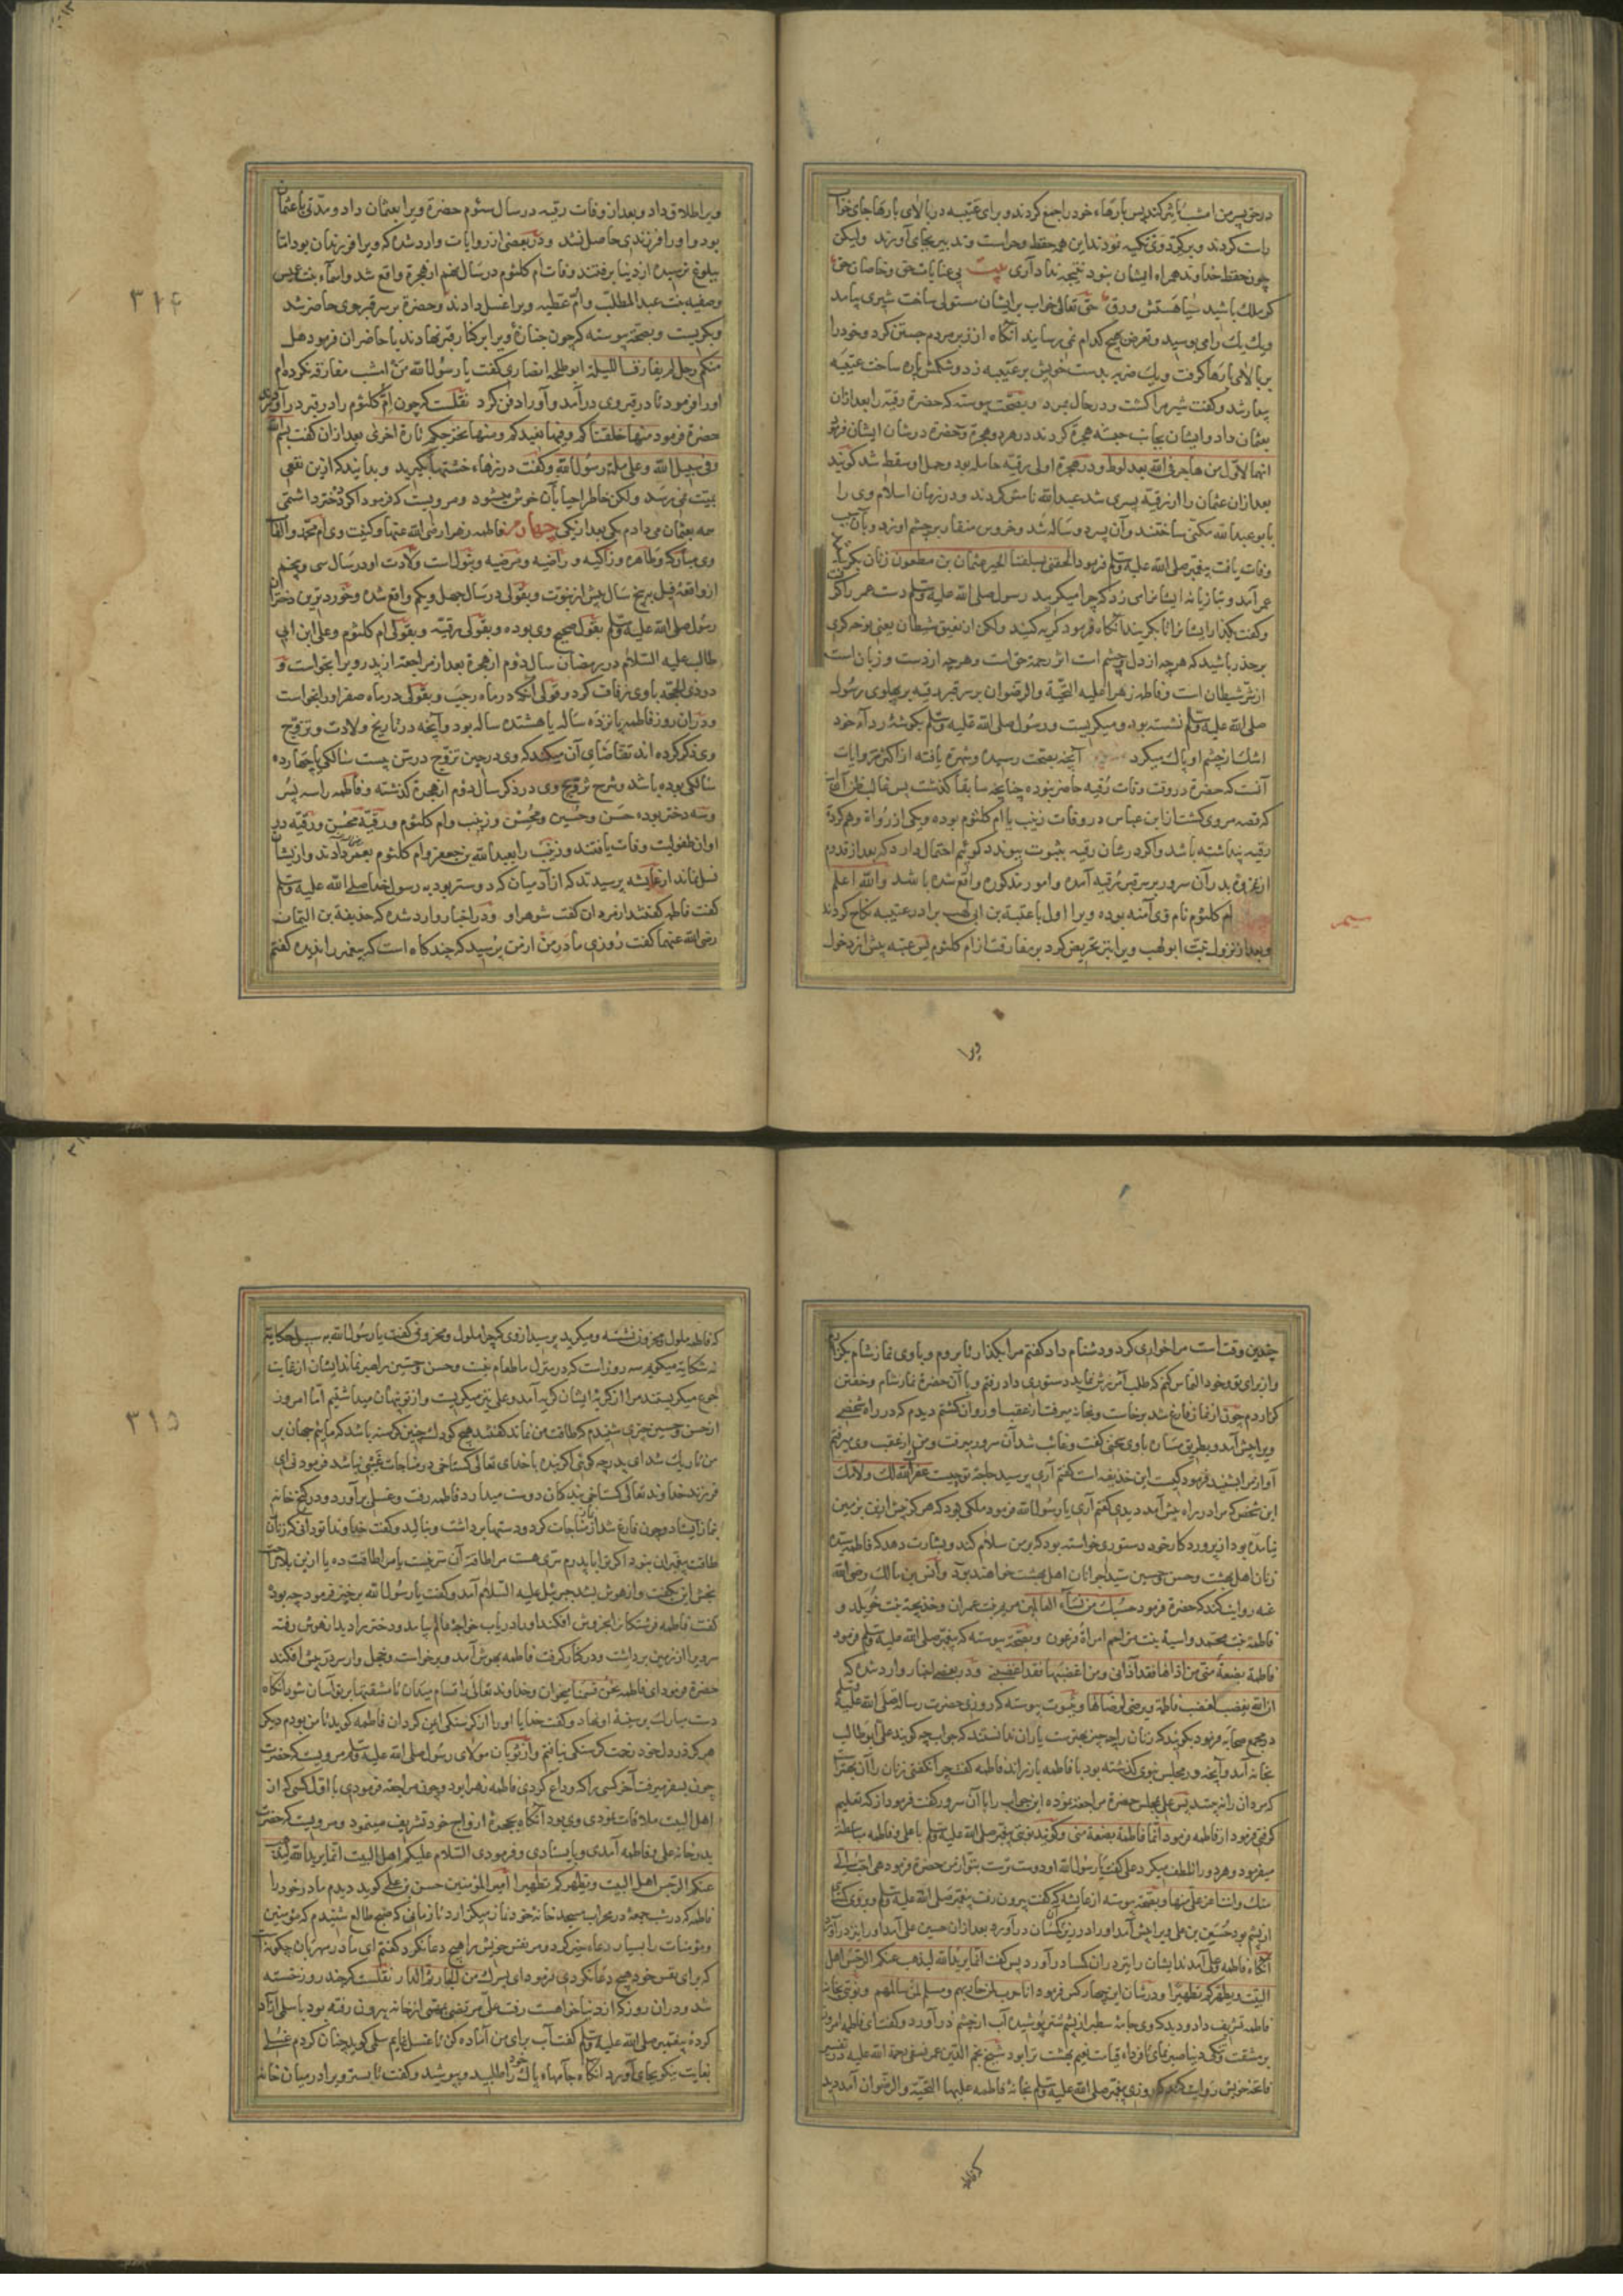 در حق پسر من اثر کند پس بارهاء خود را جمع کردند و برای عتیبه در بالای بارها جای خواب
راست کردند و بر گرد وی تکیه نودند این همه حفظ و حراست و تدبیر بجای آورند ولیکن
چون حفظ خداوند همراه ایشان نبود نتیجه نداد آری بیت بی عنایات حق و خاصان حق
گر ملک باشد سیاهستش ورق حق تعالی خواب بر ایشان مستولی ساخت شیری بیامد
و یک یک را می بوسید و تعرض هیچ کدام نمی رسانید آنگاه از زبر مردم جستن کرد و خود را
بر بالای بارها گرفت و یک ضربه بدست خویش بر عتیبه زد و شکمش پاره ساخت عتیبه
بیدار شد و گفت شیر مرا کشت و در حال بمرد و بصحت پیوسته که حضرة رقیه را بعد ازان
بعثمان داد و ایشان بجانب حبشه هجرة کردند در هر دو هجرة و حضرة در شان ایشان فرمود
انهما لاول من هاجر فی الله بعد لوط و در هجرة اولی رقیه حامله بود و حمل او سقط شد گویند
بعد ازان عثمان را از رقیه پسری شد عبد الله نامش کردند و در زمان اسلام وی را
بابو عبد الله مکنی ساختند و آن پسر دو ساله شد و خروس منقار بر چشم او زد و بآن سبب
وفات یافت پیغمبر صلی الله علیه وسلم فرمود الحقی بسلفنا الخیر عثمان بن مظعون زنان بگریستند
عمر آمد و بتازیانه ایشانرا می زد که چرا میگریید رسول صلی الله علیه وسلم دست عمر را گرفت
و گفت بگذار ایشانرا تا بگریند آنگاه فرمود گریه کنید ولکن از نعیق شیطان یعنی نوحه گری
بر حذر باشید که هرچه از دل و چشم است اثر رحمة حق است و هرچه از دست و زبان است
از شر شیطان است و فاطمه زهرا علیه التحیة والرضوان بر سر قبر رقیه بر پهلوی رسول
صلی الله علیه وسلم نشسته بود و میگریست و رسول صلی الله علیه وسلم بگوشهٔ رداء خود
اشک از چشم او پاک میکرد آنچه بصحت رسیده و شهرة یافته از اکثر روایات
آنست که حضرة در وقت وفات رقیه حاضر نبوده چنانچه سابقا گذشت پس غالب ظن آنست
که قصه مروی گشت از ابن عباس در وفات زینب یا ام کلثوم بوده و یکی از رواة وهم کردة
رقیه پنداشته باشد و اگر در شان رقیه بثبوت پیوندد گوئیم احتمال دارد که بعد از قدوم
از غزوة بدر آن سرور بر سر قبر رقیه آمده و امور مذکوره واقع شده باشد والله اعلم
ام کلثوم نام وی آمنه بوده و یرا اول با عتبة بن ابی لهب برادر عتیبه نکاح کردند
و بعد از نزول تبت ابو لهب ویرا بتحریض کرد بر مفارقت از ام کلثوم پس عتبه پیش از دخول
ویرا
ویرا طلاق داد و بعد از وفات رقیه در سال سئوم حضرة ویرا بعثمان داد و مدتی با عثمان
بود و او را فرزندی حاصل نشد و در بعضی از روایات وارد شده که ویرا فرزندان بود اما
ببلوغ نرسیده از دنیا برفتند وفات ام کلثوم در سال نهم از هجرة واقع شد و اسماء بنت عمیس
و صفیه بنت عبد المطلب و ام عطیه ویرا غسل دادند و حضرة بر سر قبر وی حاضر شد
و بگریست و بصحة پیوسته که چون جنازهٔ ویرا بر کنار قبر نهادند با حاضران فرمود هل
منکم رجل لم یقارف اللیلة ابو طلحه انصاری گفت یا رسول الله من امشب مقارفة نکرده ام
او را فرمود تا در قبر وی درآمد و آورا دفن کرد نقلست که چون ام کلثوم را در قبر درآوردند
حضرة فرمود منها خلقناکم و فیها نعیدکم و منها نخرجکم تارة اخری بعد ازان گفت بسم الله
و فی سبیل الله و علی ملة رسول الله و گفت درزهاء خشتها بگیرید و بدانید که ازین نفعی
بمیت نمی رسد ولکن خاطر احیا بآن خوش میشود و مرویست که فرمود اگر ده دختر داشتمی
همه بعثمان می دادم یکی بعد از یکی چهارم فاطمه زهرا رضی الله عنها و کنیت وی ام محمد و القاب
وی مبارکه و طاهره و زاکیه و راضیه و مرضیه و بتول است ولادت او در سال سی و پنجم
از واقعهٔ فیل پنج سال پیش از نبوت و بقولی در سال چهل و یکم واقع شده و خورد ترین دختران
رسول صلی الله علیه وسلم بقول صحیح وی بوده و بقولی رقیه و بقولی ام کلثوم و علی ابن ابی
طالب علیه السلام در رمضان سال دوم از هجرة بعد از مراجعة از بدر ویرا بخواست و
در ذی الحجه با وی زفاف کرد و قولی آنکه در ماه رجب و بقولی در ماه صفر او را بخواست
و دران روز فاطمه پانزده ساله یا هشتده ساله بود و آنچه در تاریخ ولادت و تزویج
وی ذکر کرده اند تقاضای آن میکند که وی در حین تزویج در سن بیست سالگی یا چهارده
سالگی بوده باشد و شرح تزویج وی در ذکر سال دوم از هجرة گذشته و فاطمه را سه پسر
و سه دختر بوده حسن و حسین و محسن و زینب و ام کلثوم و رقیه محسن و رقیه در
اوان طفولیت وفات یافتند و زینب را بعبد الله بن جعفر و ام کلثوم بعمر دادند و از ایشان
نسل نماند از عایشه پرسیدند که از آدمیان که دوستر بود به رسول خدا صلی الله علیه وسلم
گفت فاطمه گفتند از مردان گفت شوهر او و در اخبار وارد شده که حذیفة بن الیمان
رضی الله عنهما گفت روزی مادر من از من پرسید که چند گاه است که پیغمبر را ندیده گفتم
٣١٤
چندین وقت است مرا خواری کرد و دشنام داد گفتم مرا بگذار تا بروم و با وی نماز شام بگزارم
و از برای تو و خود التماس کنم که طلب آمرزش نماید دستوری داد رفتم و با آن حضرة نماز شام و خفتن
گزاردم چون از نماز فارغ شد برخاست و بخانه میرفت از عقب او روان گشتم دیدم که در راه شخصی
ویرا پیش آمد و بطریق سار با وی سخنی گفت و غائب شد آن سرور میرفت و من از عقب وی میرفتم
آواز مرا بشنید فرمود کیست این حذیفه است گفتم آری پرسید حاجة تو چیست غفر الله لک ولامک
این شخص که مرا در راه پیش آمد دیدی گفتم آری یا رسول الله فرمود ملکی بود که هرگز پیش ازین بزمین
نیامده بود از پروردگار خود دستوری خواسته بود که بر من سلام کند و بشارت دهد که فاطمه سیده
زنان اهل بهشت و حسن و حسین سید جوانان اهل بهشت خواهند بود و انس بن مالک رضی الله
عنه روایت کند که حضرة فرمود حسبک من نساء العالمین مریم بنت عمران و خدیجة بنت خویلد و
فاطمة بنت محمد و اسیة بنت مزاحم امراة فرعون و بصحة پیوسته که پیغمبر صلی الله علیه وسلم فرمود
فاطمة بضعة منی من اذاها فقد آذانی و من اغضبها فقد اغضبنی و در بعضی اخبار وارد شده که
ان الله یغضب لغضب فاطمة و یرضی لرضاها و بثبوت پیوسته که روزی حضرت رسالة صلی الله علیه وسلم
در مجمع صحابه فرمود بگوئید که زنان را چه چیز بهتر است یاران ندانستند که جواب چه گویند علی ابو طالب
بخانه آمد و آنچه در مجلس نبوی گذشته بود با فاطمه باز راند فاطمه گفت چرا نگفتی زنان را آن بهتر است
که مردان را نه بینند پس علی بمجلس حضرة مراجعة نموده این جواب را با آن سرور گفت فرمود از که تعلیم
گرفتی فرمود از فاطمه فرمود انما فاطمة بضعة منی و گویند نوبتی پیغمبر صلی الله علیه وسلم با علی و فاطمه مباسطة
میفرمود و هر دو را تلطف میکرد علی گفت یا رسول الله او دوست ترست بتو از من حضرة فرمود هی احب الی
منک وانت اعز علی منها و بصحة پیوسته از عایشه که گفت بیرون رفت پیغمبر صلی الله علیه وسلم و بر وی کسای
از پشم بود حسین بن علی ویرا پیش آمد او را در زیر کسان درآورد بعد ازان حسین علی آمد او را نیز درآورد
آنگاه فاطمه و علی آمدند ایشان را نیز دران کسا درآورد پس گفت انما یرید الله لیذهب عنکم الرجس اهل
البیت و یطهرکم تطهیرا و در شان این چهار کس فرمود انا حرب لمن حاربهم و سلم لمن سالمهم و نوبتی بخانه
فاطمه تشریف داد و دید که وی جامهٔ سطبر از پشم شتر پوشیده آب از چشم درآورد و گفت ای فاطمه امروز
بر مشقت و تلخی دنیا صبر نمای تا فرداء قیامت نعیم بهشت ترا بود شیخ نجم الدین عمر نسفی رحمة الله علیه در تفسیر
فاتحه خویش روایت کند که روزی پیغمبر صلی الله علیه وسلم بخانهٔ فاطمه علیها التحیة والرضوان آمد دید
که فاطمه
که فاطمه ملول و محزون نشسته و میگرید پرسید از وی که چرا ملول و محزونی گفت یا رسول الله به سبیل حکایة
نه شکایة میگویم سه روز است که در منزل ما طعام نیست و حسن و حسین را صبر نماند ایشان از غایت
جوع میگریستند مرا از گریه ایشان گریه آمد و علی نیز میگریست و از تو پنهان میداشتیم اما امروز
از حسن و حسین چیزی شنیدم که طاقت من نماند گفتند هیچ کودک چنین گرسنه باشد که مائیم جهان بر
من تاریک شد ای پدر چه گوئی اگر بنده با خدای تعالی گستاخی در مناجات عیبی نباشد فرمود نی ای
فرزند خداوند تعالی گستاخی بندگان دوست میدارد فاطمه رفت و غسل برآورد و در کنج خانه
بنماز ایستاد و چون فارغ شد از نماز مناجات کرد و دستها برداشت و بنالید و گفت خداوندا تو دانی که زنان
طاقت پیغمبران نبود اگر ترا با پدرم سری هست مرا طاقة آن سر نیست یا مرا طاقت ده یا ازین بلا راحت
بخش این بگفت و از هوش بشد جبرئیل علیه السلام آمد و گفت یا رسول الله برخیز فرمود چه بود
گفت فاطمه فرشتگان را بخروش افکند او را دریاب خواجهٔ عالم بیامد و دختر را دید از هوش رفته
سر ویرا از زمین برداشت و در کنار گرفت فاطمه بهوش آمد و برخواست و خجل وار سر در پیش افکند
حضرة فرمود ای فاطمه نحن قسمنا میخوان و خداوند تعالی را قسام میدان تا مشقتها بر تو آسان شود آنگاه
دست مبارک بر سینهٔ او نهاد و گفت خدایا او را از گرسنگی ایمن گردان فاطمه گوید تا من بودم دیگر
هرگز در دل خود زحمت گرسنگی نیافتم و از ثوبان مولای رسول صلی الله علیه وسلم مرویست که حضرت
چون بسفر میرفت آخر کسی را که وداع کردی فاطمه زهرا بود و چون مراجعة فرمودی با اول کسی که از
اهل البیت ملاقات نمودی وی بود آنگاه بحجرة ازواج خود تشریف مینمود و مرویست که حضرت
بدر خانه علی و فاطمه آمدی و بایستادی و فرمودی السلام علیکم اهل البیت انما یرید الله لیذهب
عنکم الرجس اهل البیت و یطهرکم تطهیرا امیر المؤمنین حسن بن علی گوید دیدم مادر خود را
فاطمه که در شب جمعهٔ در محراب مسجد خانهٔ خود نماز میگزارد تا زمانی که صبح طالع شد شنیدم که مؤمنین
و مؤمنات را بسیار دعاء خیر کرد و مر نفس خویش را هیچ دعا نکرد گفتم ای مادر مهربان چگونه
که برای نفس خود هیچ دعا نکردی فرمود ای پسرک من الجار ثم الدار نقلست که چند روز خسته
شد و دران روز که از دنیا خواست رفت علی مرتضی بمهمی از خانه بیرون رفته بود با سلمی آزاد
کردهٔ پیغمبر صلی الله علیه وسلم گفت آب برای من آماده کن تا غسل نمایم سلمی گوید چنان کردم غسلی
بغایت نیکو بجای آورد آنگاه جامهاء پاک خود را طلبید و بپوشید و گفت تا بستر ویرا در میان خانه
٣١٥